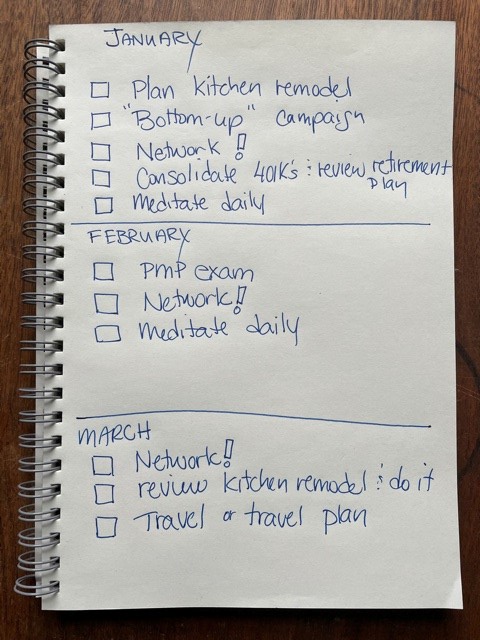 JANUARY
Plan kitchen remodel
"Bottom-up" campaign
Network!
Consolidate 401K's & review retirement
plan
Meditate daily
FEBRUARY
PMP exam
Network!
Meditate daily
MARCH
Network!
review kitchen remodel & do it
Travel or travel plan